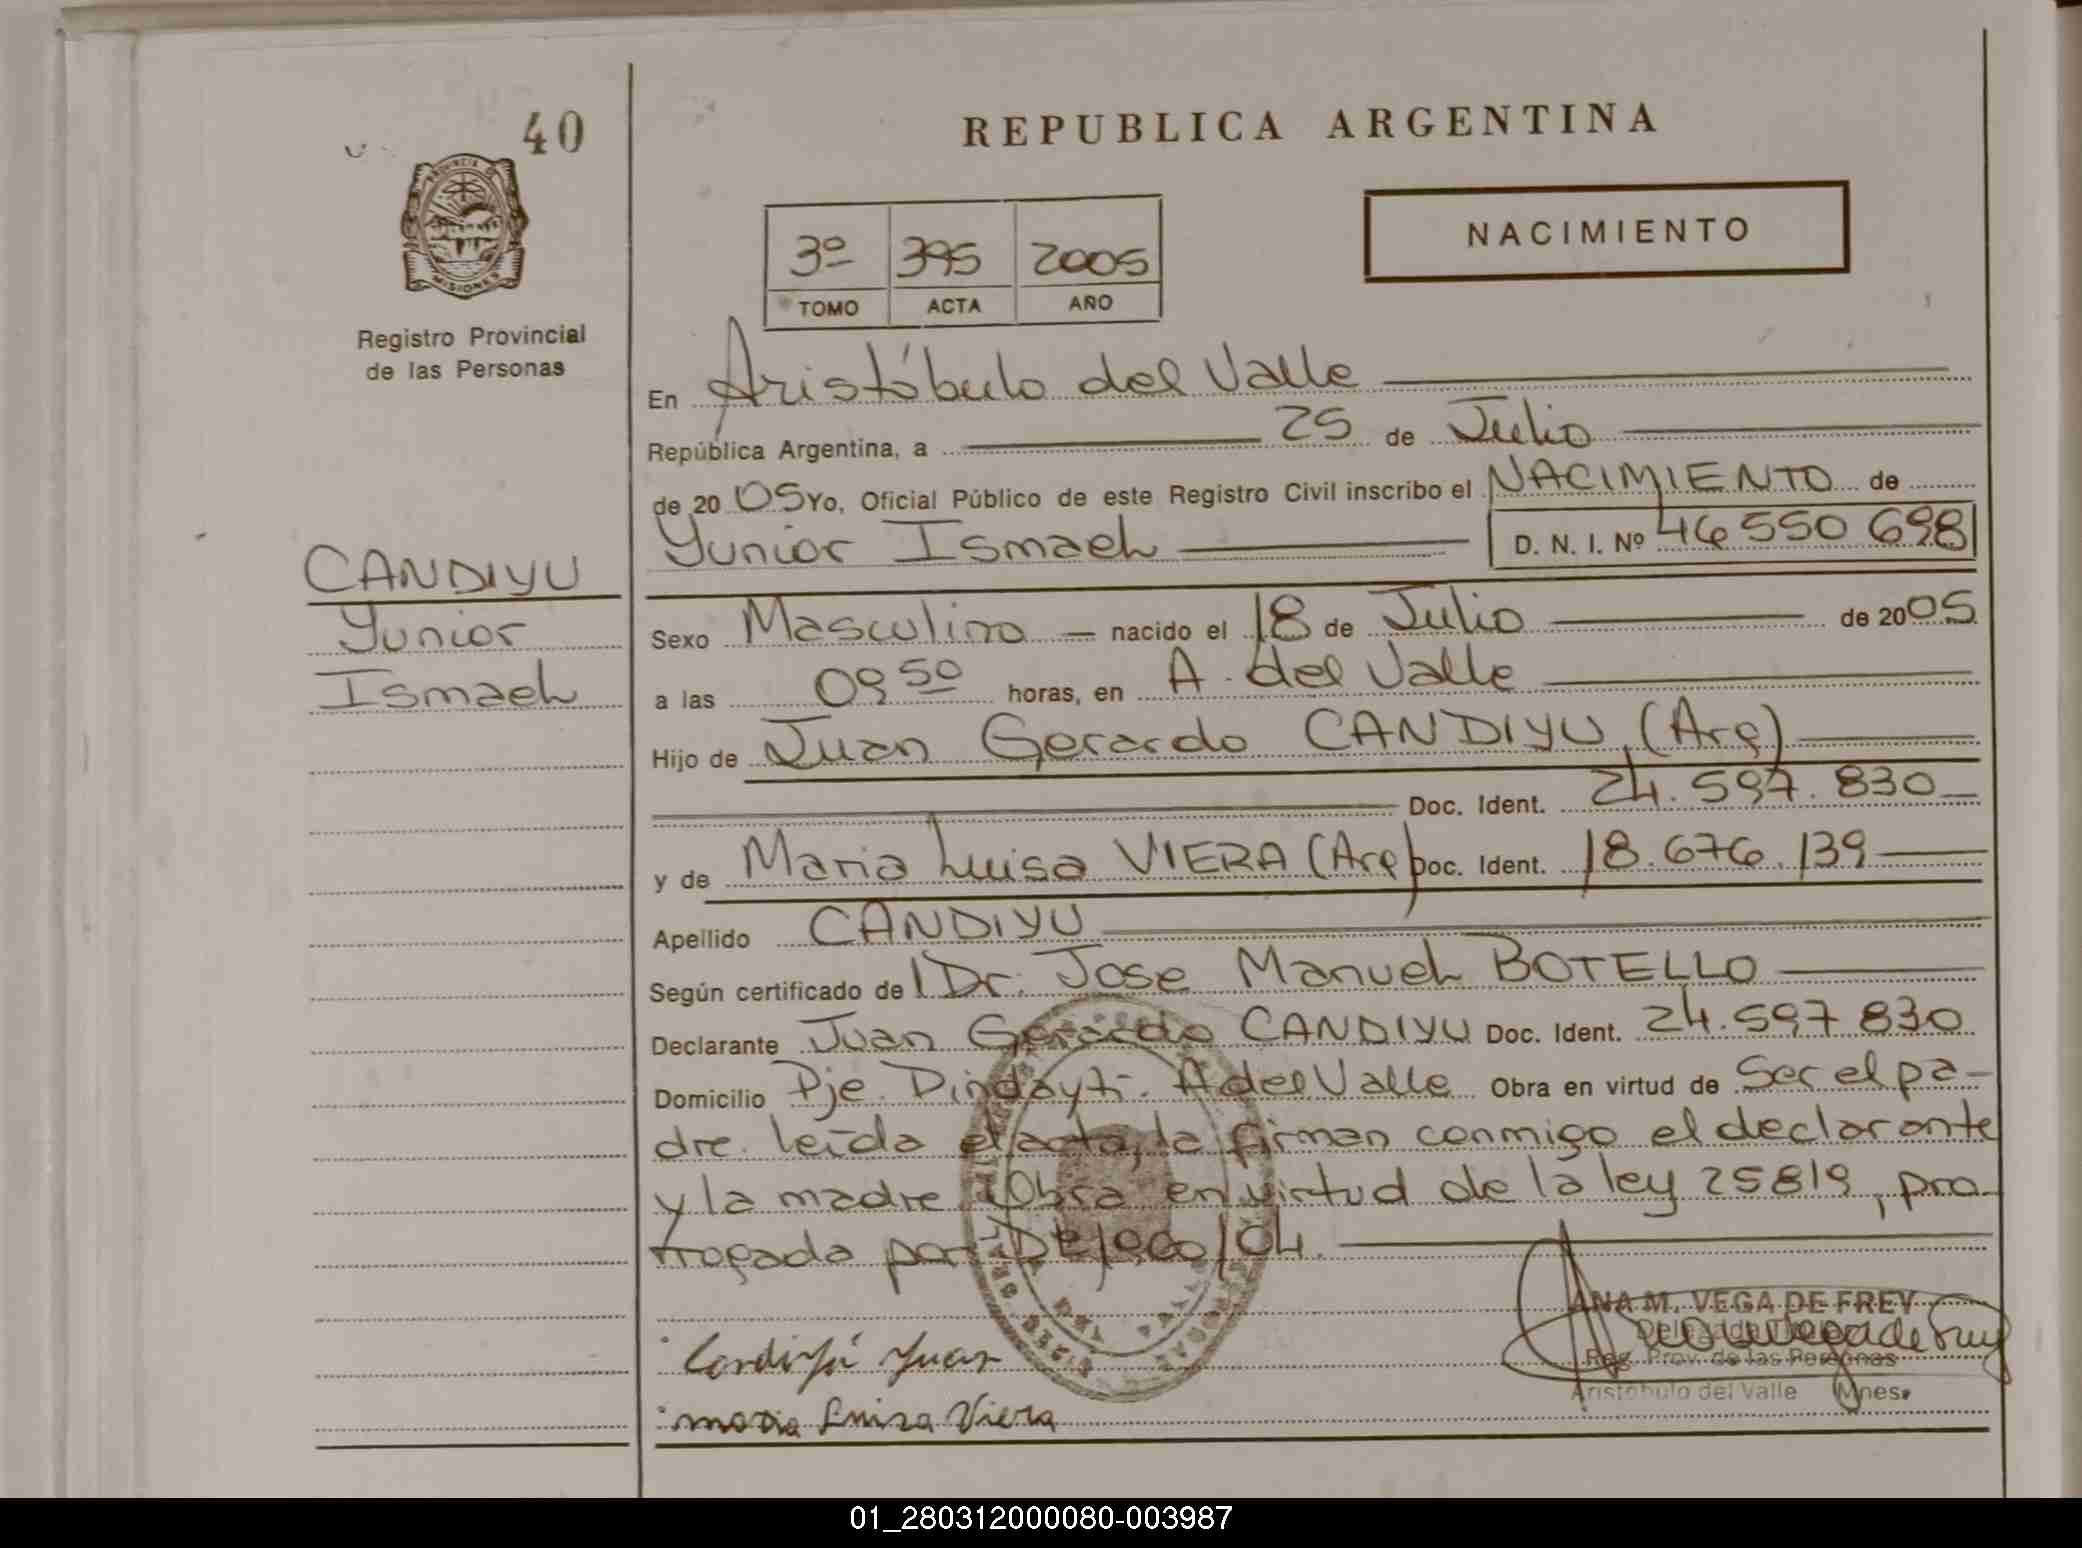 40
PROVINCIA DE
MISIONES
Registro Provincial
de las Personas
CANDIYU
Yunior
Ismael
REPUBLICA ARGENTINA
3º 395 2005
TOMO ACTA AÑO
NACIMIENTO
En Aristóbulo del Valle
República Argentina, a 25 de Julio
de 20 05 Yo, Oficial Público de este Registro Civil inscribo el NACIMIENTO de
Yunior Ismael D. N. I. Nº 46 550 698
Sexo Masculino nacido el 18 de Julio de 2005
a las 09 50 horas, en A. del Valle
Hijo de Juan Gerardo CANDIYU, (Arg)
Doc. Ident. 24.597.830
y de Maria Luisa VIERA (Arg) Doc. Ident. 18.676.139
Apellido CANDIYU
Según certificado de Dr. Jose Manuel BOTELLO
Declarante Juan Gerardo CANDIYU Doc. Ident. 24.597 830
Domicilio Pje. Dindayti. A del Valle Obra en virtud de Ser el pa-
dre. leída el acta, la firman conmigo el declarante
y la madre. Obra en virtud de la ley 25819, pro-
rrogada por
Candiyú Juan
maria Luisa Viera
ANA M. VEGA DE FREY
Reg. Prov. de las Personas
Aristobulo del Valle Mnes.
01_280312000080-003987